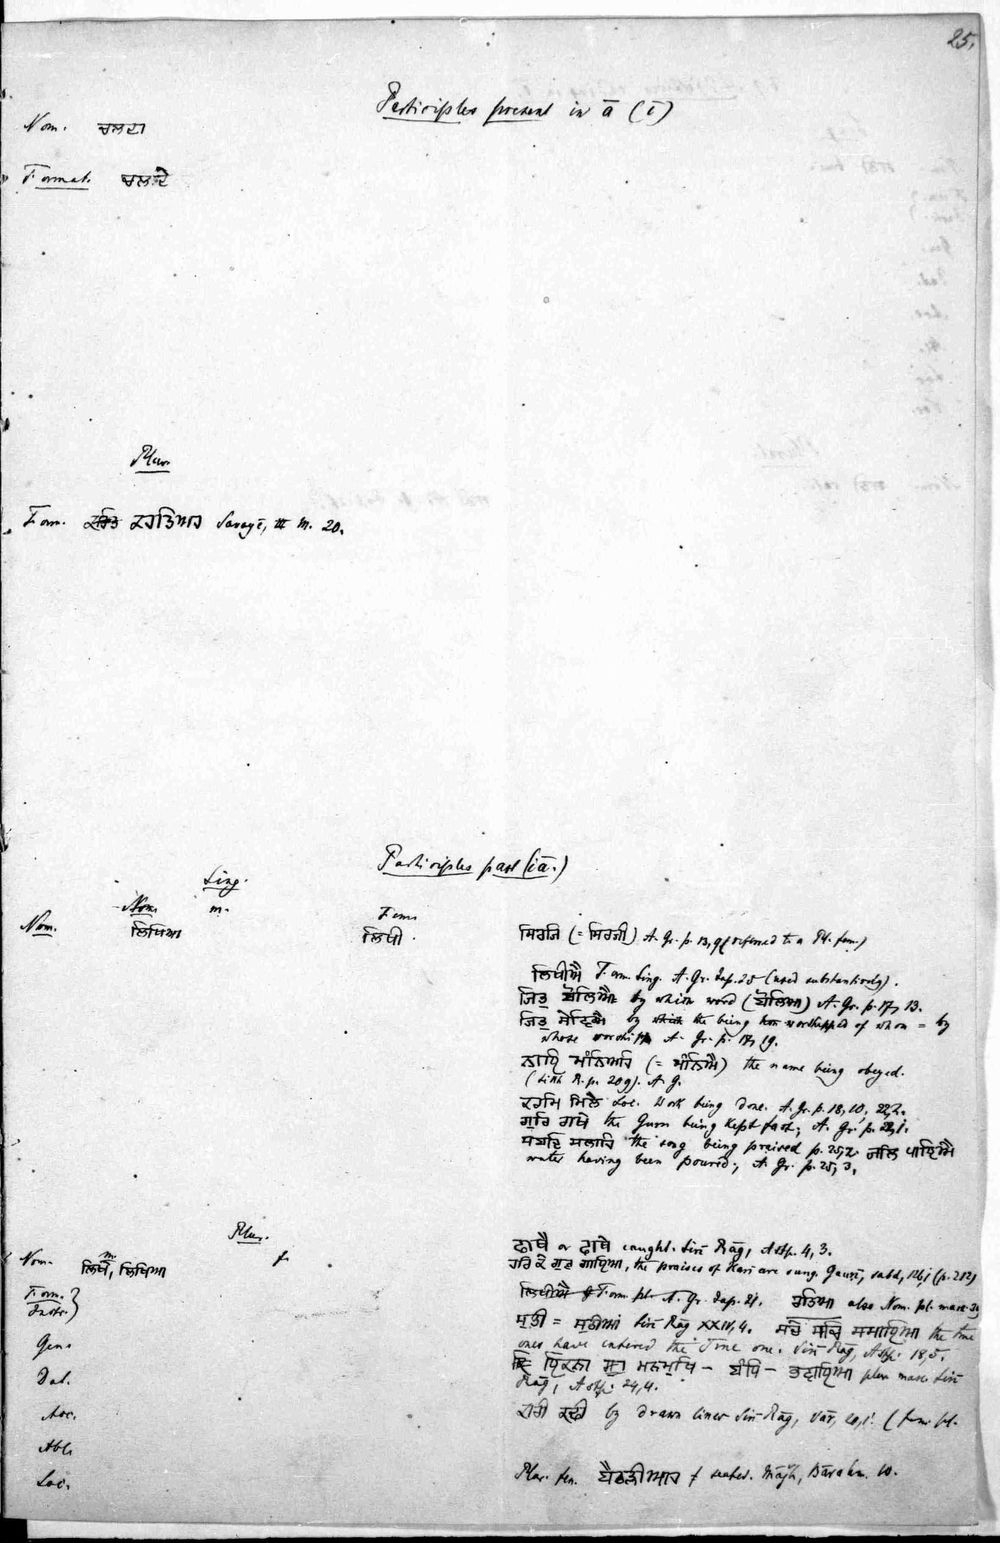 25.
Participles present in ā (ī)
Nom. ਚਲਦਾ
Format. ਚਲਦੇ
Plur.
Form. ਕਰਤਿਆਹ Savayē, III M. 20.
Participles past (iā.)
Sing.
Nom. m. Fem.
Nom. ਲਿਖਿਆ ਲਿਖੀ.
ਸਿਰਜਿ (= ਸਿਰਜੀ) A. Gr. p. 13, 9 (referred to a Pl. fem.)
ਲਿਖੀਐ Form. Sing. A. Gr. Jap. 25 (used substantively).
ਜਿਤੁ ਬੋਲਿਐ by which word (ਬੋਲਿਆ) A. Gr. p. 17, 13.
ਜਿਤੁ ਸੇਵਿਐ by the being worshipped of whom = by
whose worship A. Gr. p. 17, 19.
ਨਾਇ ਮੰਨਿਅਹਿ (= ਮੰਨਿਐ) the name being obeyed.
(p. 209). A. G.
ਕਰਮਿ ਮਿਲੈ Loc. Work being done. A. Gr. p. 18, 10, 22, 2.
ਗੁਰਿ ਰਾਖੇ the Guru being kept fast; A. Gr. p. 22, 1.
ਸਬਦਿ ਸਲਾਹਿ the song being praised p. 25, 2. ਜਲਿ ਪਾਇਐ
water having been poured; A. Gr. p. 25, 3.
Plur.
m. f.
Nom. ਲਿਖੇ, ਲਿਖਿਆ
ਫਾਥੈ or ਫਾਥੇ caught. Sirī Rāg, Astp. 4, 3.
ਹਰਿ ਕੇ ਗੁਣ ਗਾਇਆ, the praises of Hari are sung. Gaurī, sabd, 126, 1 (p. 282)
Form.
Instr. }
ਲਿਖੀਐ Form. pl. A. Gr. Jap. 21. ਰਤਿਆ also Nom. pl. masc.
ਸੁਤੀ = ਸੁਤੀਆਂ Sirī Rāg XXIV, 4. ਸਚੇ ਸਚਿ ਸਮਾਇਆ the true
ones have entered the True one. Sirī Rāg, Astp. 18, 5.
Gen.
ਇਕਨਾ ਮਨਮੁਖਿ – ਬੰਧਿ – ਭਵਾਇਆ plur. masc. Sirī
Rāg, Astp. 24, 4.
Dat.
Acc.
ਕਾਰੀ ਕਢੀ by drawn lines Sirī Rāg, Vār, 20, 1. (fem. pl.
Abl.
Loc.
Plur. fem. ਬੈਠੜੀਆਹ f seated. Mājh, Bārahm. 10.